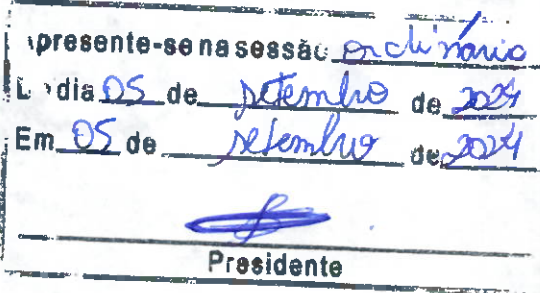 apresente-se na sessão ordinário
Do dia 05 de setembro de 2024
Em 05 de setembro de 2024
Presidente